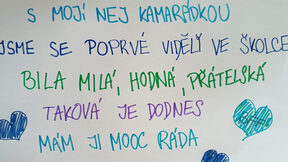 S MOJÍ NEJ KAMARÁDKOU
JSME SE POPRVÉ VIDĚLY VE ŠKOLCE
BILA MILÁ, HODNÁ, PŘÁTELSKÁ
TAKOVÁ JE DODNES
MÁM JI MOOC RÁDA